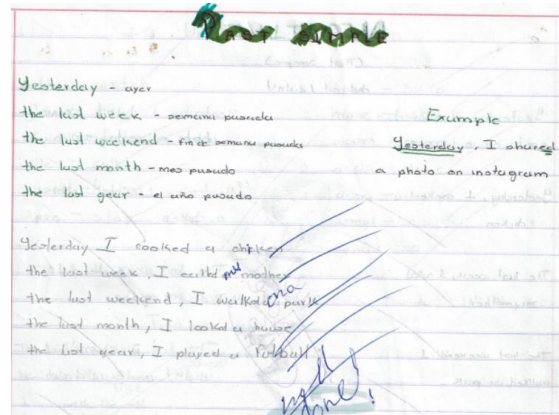 PAST SIMPLE
Yesterday - ayer
the last week - semana pasada
the last weekend - fin de semana pasada
the last month - mes pasado
the last year - el año pasado
Example
Yesterday, I shared
a photo on instagram
Yesterday I cooked a chicken
the last week, I called my mother
the last weekend, I walked a park
the last month, I looked a house
the last year, I played a football
well
done!